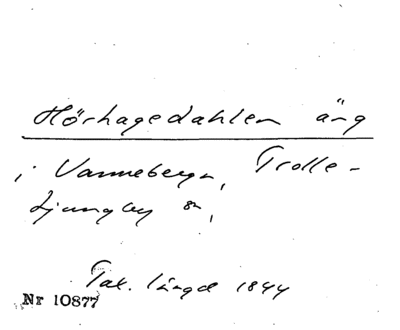 Hörhagedahlen äng
i Vanneberga, Trolle-
Ljungby sn,
Tax. längd 1844
Nr 10877